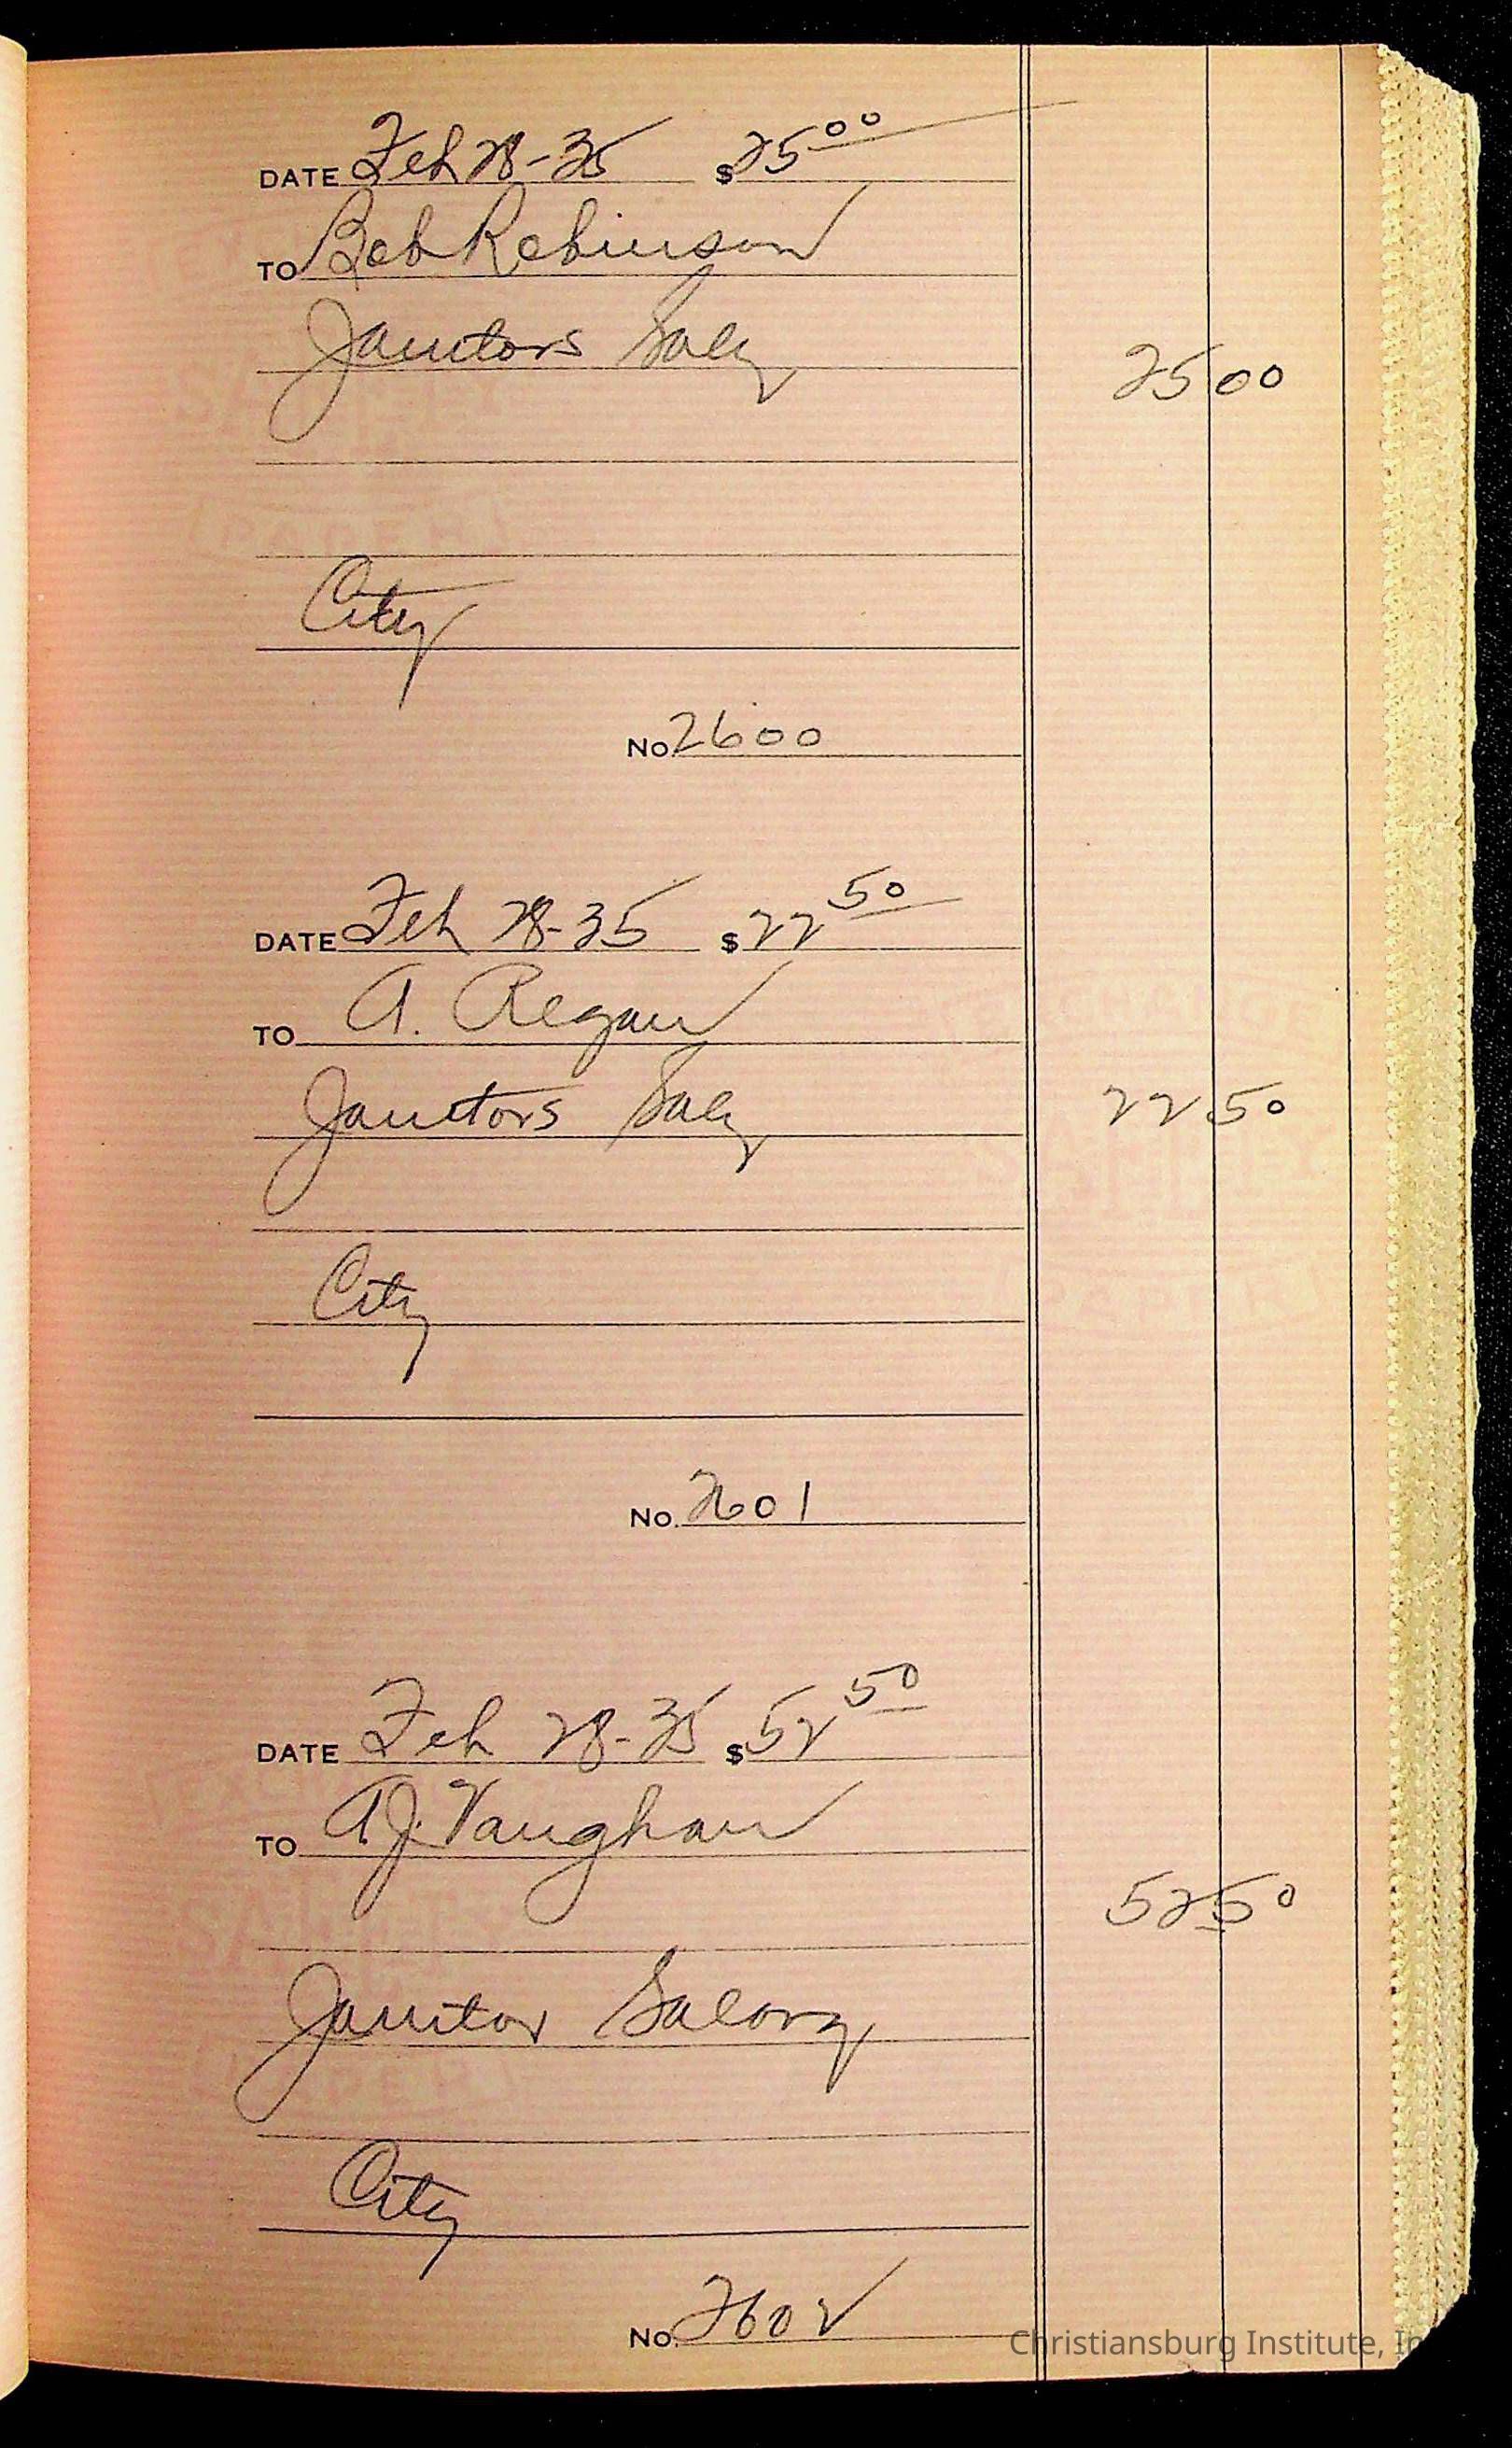 DATE Feb 28-35 $25 00
TO Bob Robinson
Janitors Saly
25 00
City
No. 2600
DATE Feb 28-35 $22 50
TO A. Regan
Janitors Saly
22 50
City
No. 2601
DATE Feb 28-35 $52 50
TO A.J. Vaughan
52 50
Janitor Salary
City
No. 2602
Christiansburg Institute, In